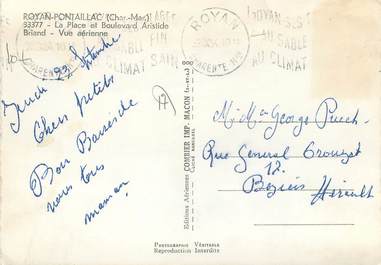 ROYAN-PONTAILLAC (Char.-Mar.)
93377 - La Place et Boulevard Aristide
Briand - Vue aérienne
ROYAN
CHARENTE Mme
ROYAN-SES
AU SABLE
AU CLIMAT
SABLE FIN
CLIMAT SAIN
Jeudi 23 Septembre
Chers petits
Bon Baisés de
nous tous
maman
17
Editions Aériennes COMBIER IMP. MACON (S.-et-L.)
M. Mme George Puech
Rue General Crouzat
12
Beziers Hérault
Photographie Véritable
Reproduction Interdite